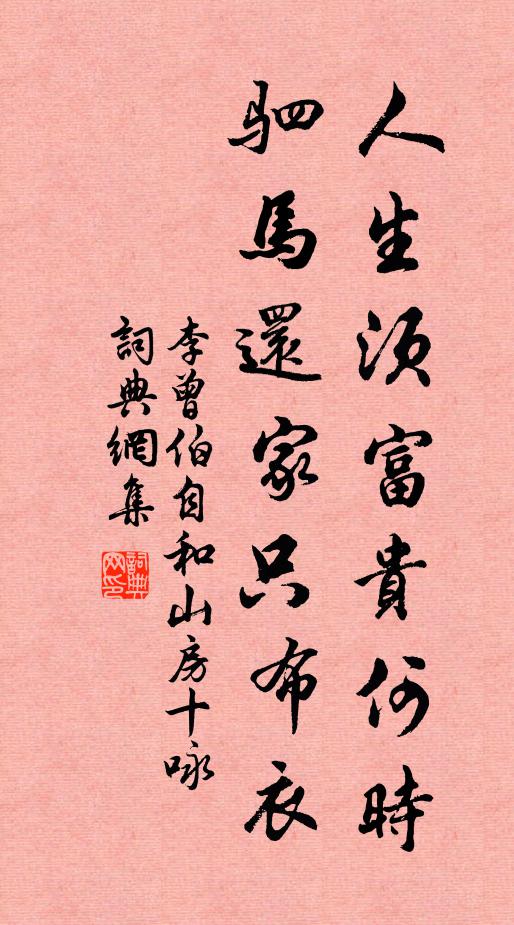 人生須富貴何時
駟馬還家只布衣
李曾伯自和山房十咏
詞典網集
詞典網印